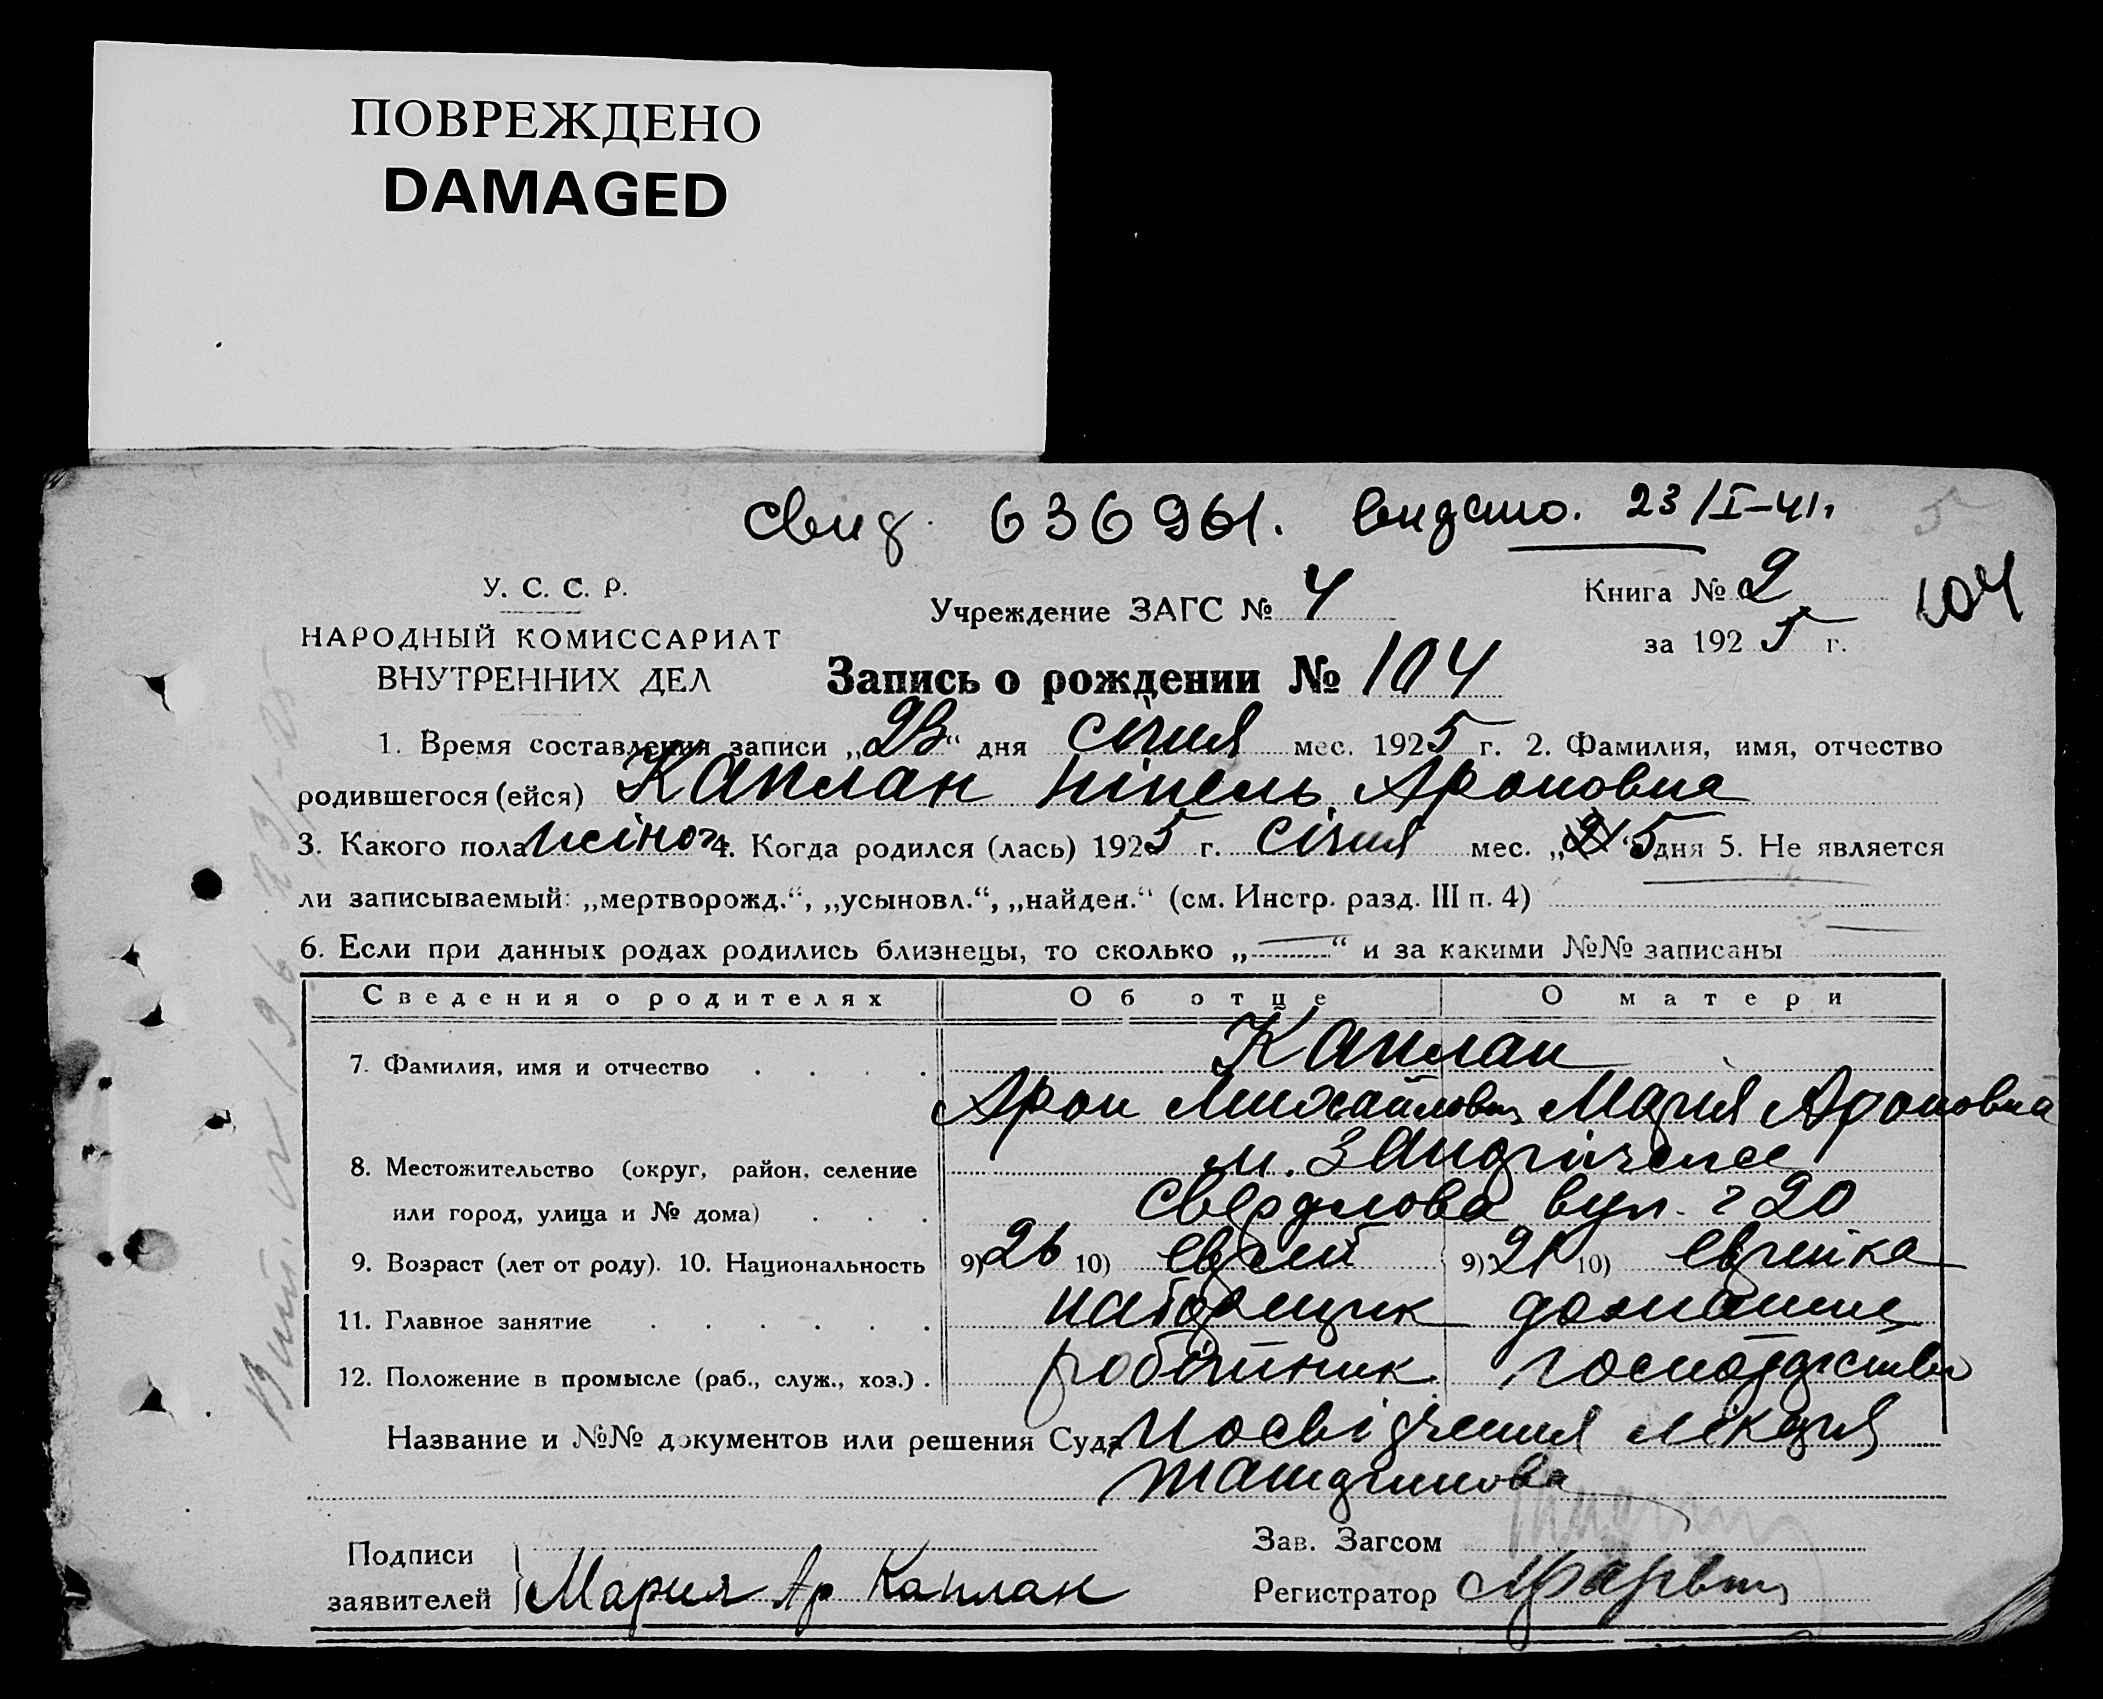 ПОВРЕЖДЕНО
DAMAGED
свид. 636961. видано. 23/I-41.
5
У. С. С. Р.
НАРОДНЫЙ КОМИССАРИАТ
ВНУТРЕННИХ ДЕЛ
Учреждение ЗАГС № 4
Книга № 2
за 1925 г.
104
Запись о рождении № 104
1. Время составления записи „23“ дня січня мес. 1925 г. 2. Фамилия, имя, отчество
родившегося (ейся) Каплан Нінель Ароновна
3. Какого пола жіноч 4. Когда родился (лась) 1925 г. січня мес. „5“ дня 5. Не является
ли записываемый: „мертворожд.“, „усыновл.“, „найден.“ (см. Инстр. разд. III п. 4)
6. Если при данных родах родились близнецы, то сколько „—“ и за какими №№ записаны
Сведения о родителях Об отце О матери
7. Фамилия, имя и отчество . . . . Каплан
Арон Михайлович Мария Ароновна
8. Местожительство (округ, район, селение м.
или город, улица и № дома) . . . Свердлова вул. 20
9. Возраст (лет от роду). 10. Национальность 9) 26 10) еврей 9) 21 10) еврейка
11. Главное занятие . . . . . . наборщик домашнє
12. Положение в промысле (раб., служ., хоз.) . робітник господарство
Название и №№ документов или решения Суда Посвідчення лікаря
Подписи
заявителей Мария Ар Каплан
Зав. Загсом
Регистратор